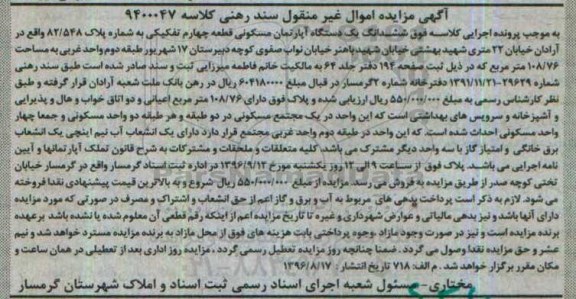 آگهی مزایده اموال غیر منقول سند رهنی کلاسه ۹۴۰۰۰۴۷
به موجب پرونده اجرایی کلاسه فوق ششدانگ یک دستگاه آپارتمان مسکونی قطعه چهارم تفکیکی به شماره پلاک ۸۲/۵۴۸ واقع در
آرادان خیابان ۲۲ متری شهید بهشتی خیابان شهید باهنر خیابان نواب صفوی کوچه دبیرستان ۱۷ شهریور طبقه دوم واحد غربی به مساحت
۱۰۸/۷۶ متر مربع که در ذیل ثبت صفحه ۱۹۴ دفتر جلد ۶۴ به مالکیت خانم فاطمه میرزایی ثبت و سند صادر شده است طبق سند رهنی
شماره ۲۹۶۲۹-۱۳۹۱/۱۱/۲۱ دفترخانه شماره ۲ گرمسار در قبال مبلغ ۶۰۴۱۸۰۰۰۰ ریال در رهن بانک ملت شعبه آرادان قرار گرفته و طبق
نظر کارشناس رسمی به مبلغ ۵۵۰/۰۰۰/۰۰۰ ریال ارزیابی شده و پلاک فوق دارای ۱۰۸/۷۶ متر مربع اعیانی و دو اتاق خواب و هال و پذیرایی
و آشپزخانه و سرویس های بهداشتی است که این واحد در یک مجتمع مسکونی در دو طبقه و هر طبقه دو واحد مسکونی و جمعا چهار
واحد مسکونی احداث شده است. که این واحد در طبقه دوم واحد غربی مجتمع قرار دارد دارای یک انشعاب آب نیم اینچی یک انشعاب
برق خانگی و امتیاز گاز با سه واحد دیگر مشترک می باشد. کلیه متعلقات و ملحقات و مشترکات به شرح قانون تملک آپارتمانها و آیین
نامه اجرایی می باشد. پلاک فوق از ساعت ۹ الی ۱۲ روز یکشنبه مورخ ۱۳۹۶/۹/۱۲ در اداره ثبت اسناد گرمسار واقع در گرمسار خیابان
تختی کوچه صدر از طریق مزایده به فروش می رسد. مزایده از مبلغ ۵۵۰/۰۰۰/۰۰۰ ریال شروع و به بالاترین قیمت پیشنهادی نقدا فروخته
می شود. لازم به ذکر است پرداخت بدهی های مربوط به آب و برق و گاز اعم از حق انشعاب و اشتراک و مصرف در صورتی که مورد مزایده
دارای آنها باشد و نیز بدهی مالیاتی و عوارض شهرداری و غیره تا تاریخ مزایده اعم از اینکه رقم قطعی آن معلوم شده یا نشده باشد برعهده
برنده مزایده است و نیز در صورت وجود مازاد، وجوه پرداختی بابت هزینه های فوق از محل مازاد به برنده مزایده مسترد خواهد شد و نیم
عشر و حق مزایده نقدا وصول می گردد. ضمنا چنانچه روز مزایده تعطیل رسمی گردد، مزایده روز اداری بعد از تعطیلی در همان ساعت و
مکان مقرر برگزار خواهد شد. م الف: ۷۱۸ تاریخ انتشار: ۱۳۹۶/۸/۱۷
مختاری – مسئول شعبه اجرای اسناد رسمی ثبت اسناد و املاک شهرستان گرمسار